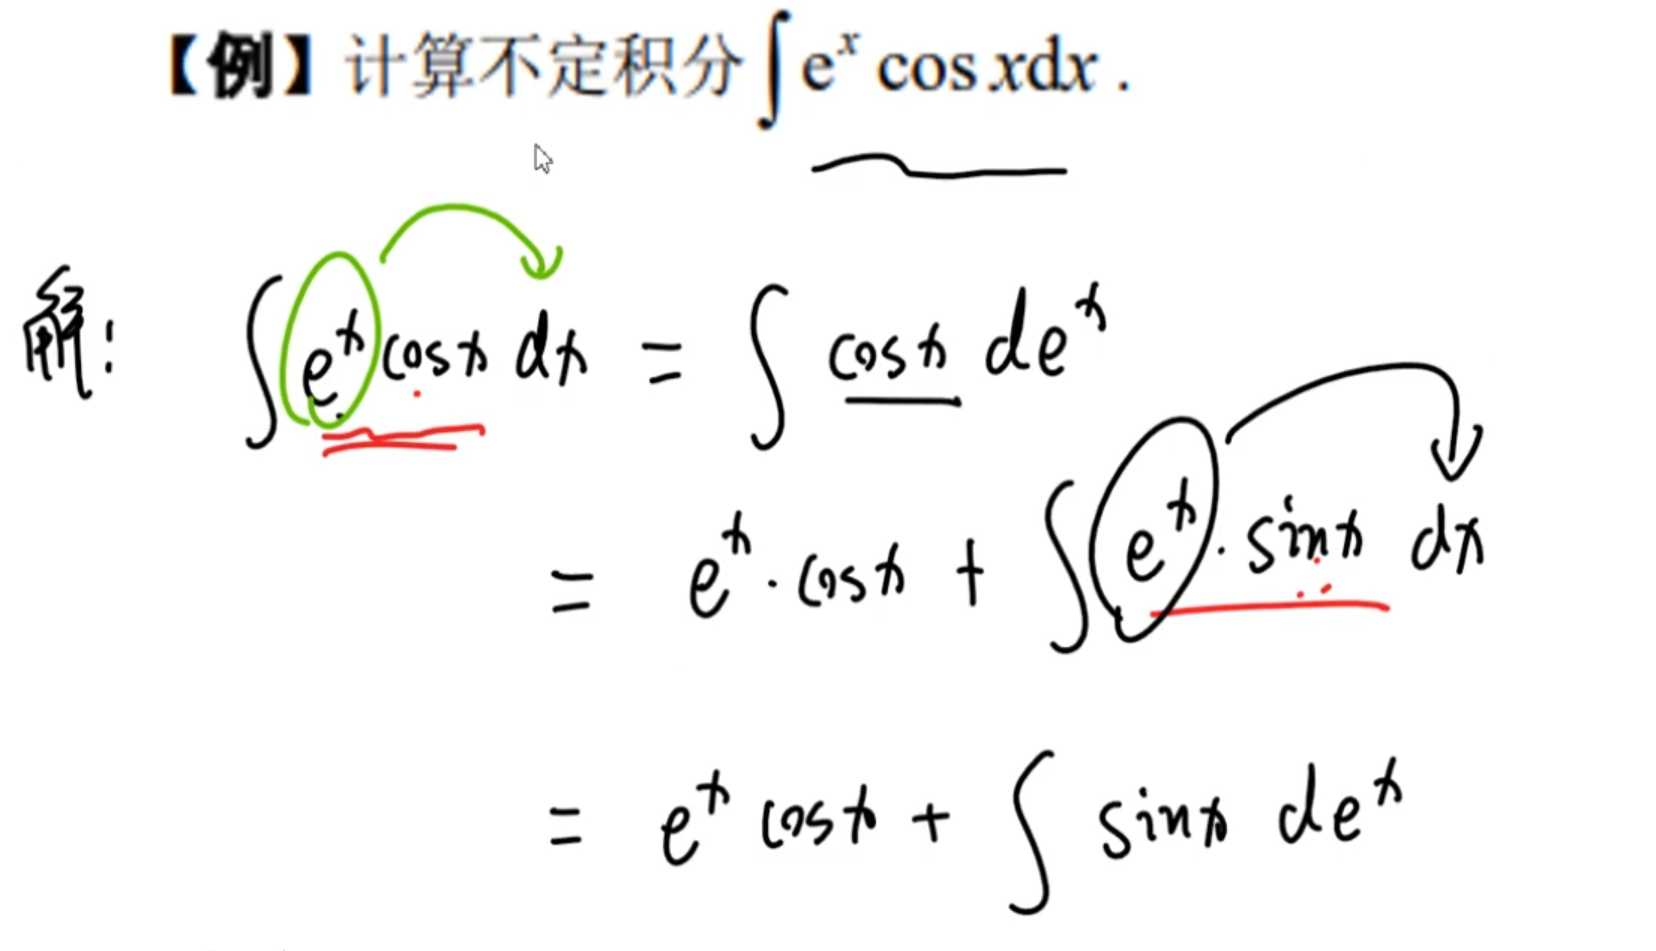 【例】计算不定积分∫eˣ cos xdx .
解: ∫ eˣ cosx dx = ∫ cosx deˣ
= eˣ · cosx + ∫ eˣ · sinx dx
= eˣ cosx + ∫ sinx deˣ